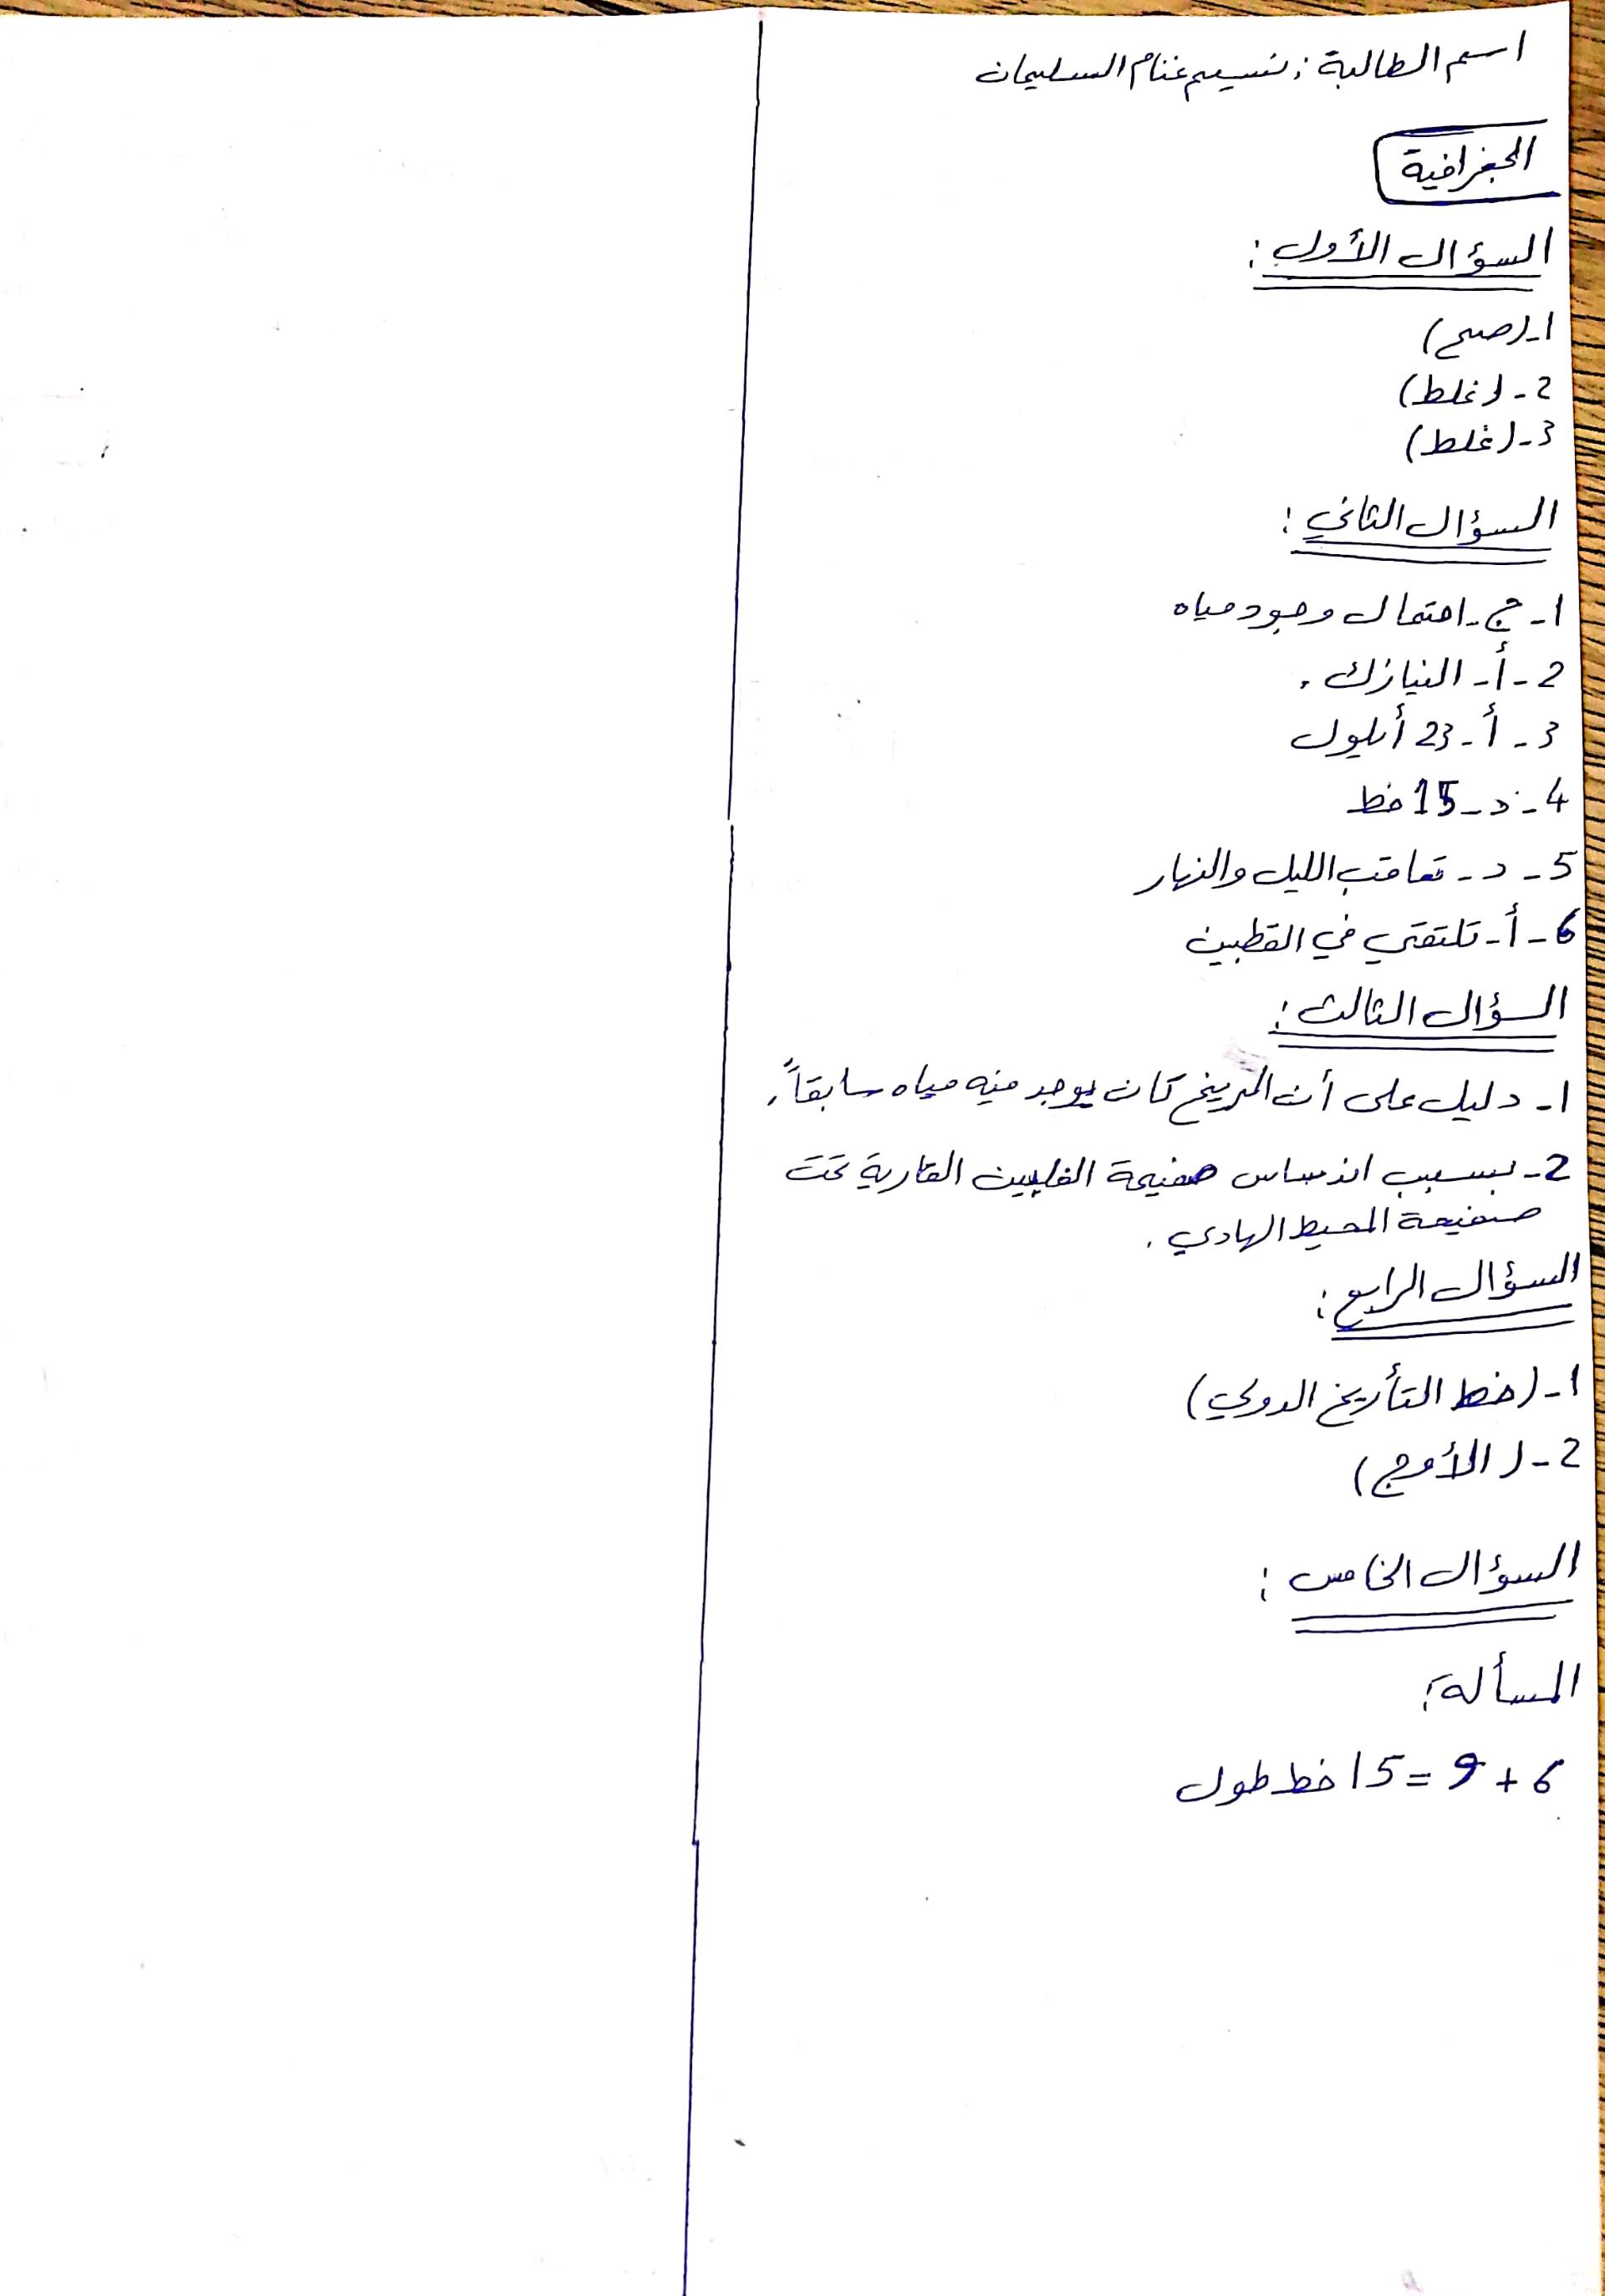 اسم الطالبة : نسيم غنام السليمان
الجغرافية
السؤال الأول :
1-(صح)
2-(غلط)
3-(غلط)
السؤال الثاني :
1- ج- احتمال وجود مياه
2- أ- النيازك .
3- أ- 23 أيلول
4- د- 15 خط
5- د- تعاقب الليل والنهار
6- أ- تلتقي في القطبين
السؤال الثالث :
1- دليل على أن المريخ كان يوجد فيه مياه سابقاً.
2- بسبب اندساس صفيحة الفلبين القارية تحت
صفيحة المحيط الهادي .
السؤال الرابع :
1-(خط التأريخ الدولي)
2-(الأوج)
السؤال الخامس :
المسألة:
6 + 9 = 15 خط طول